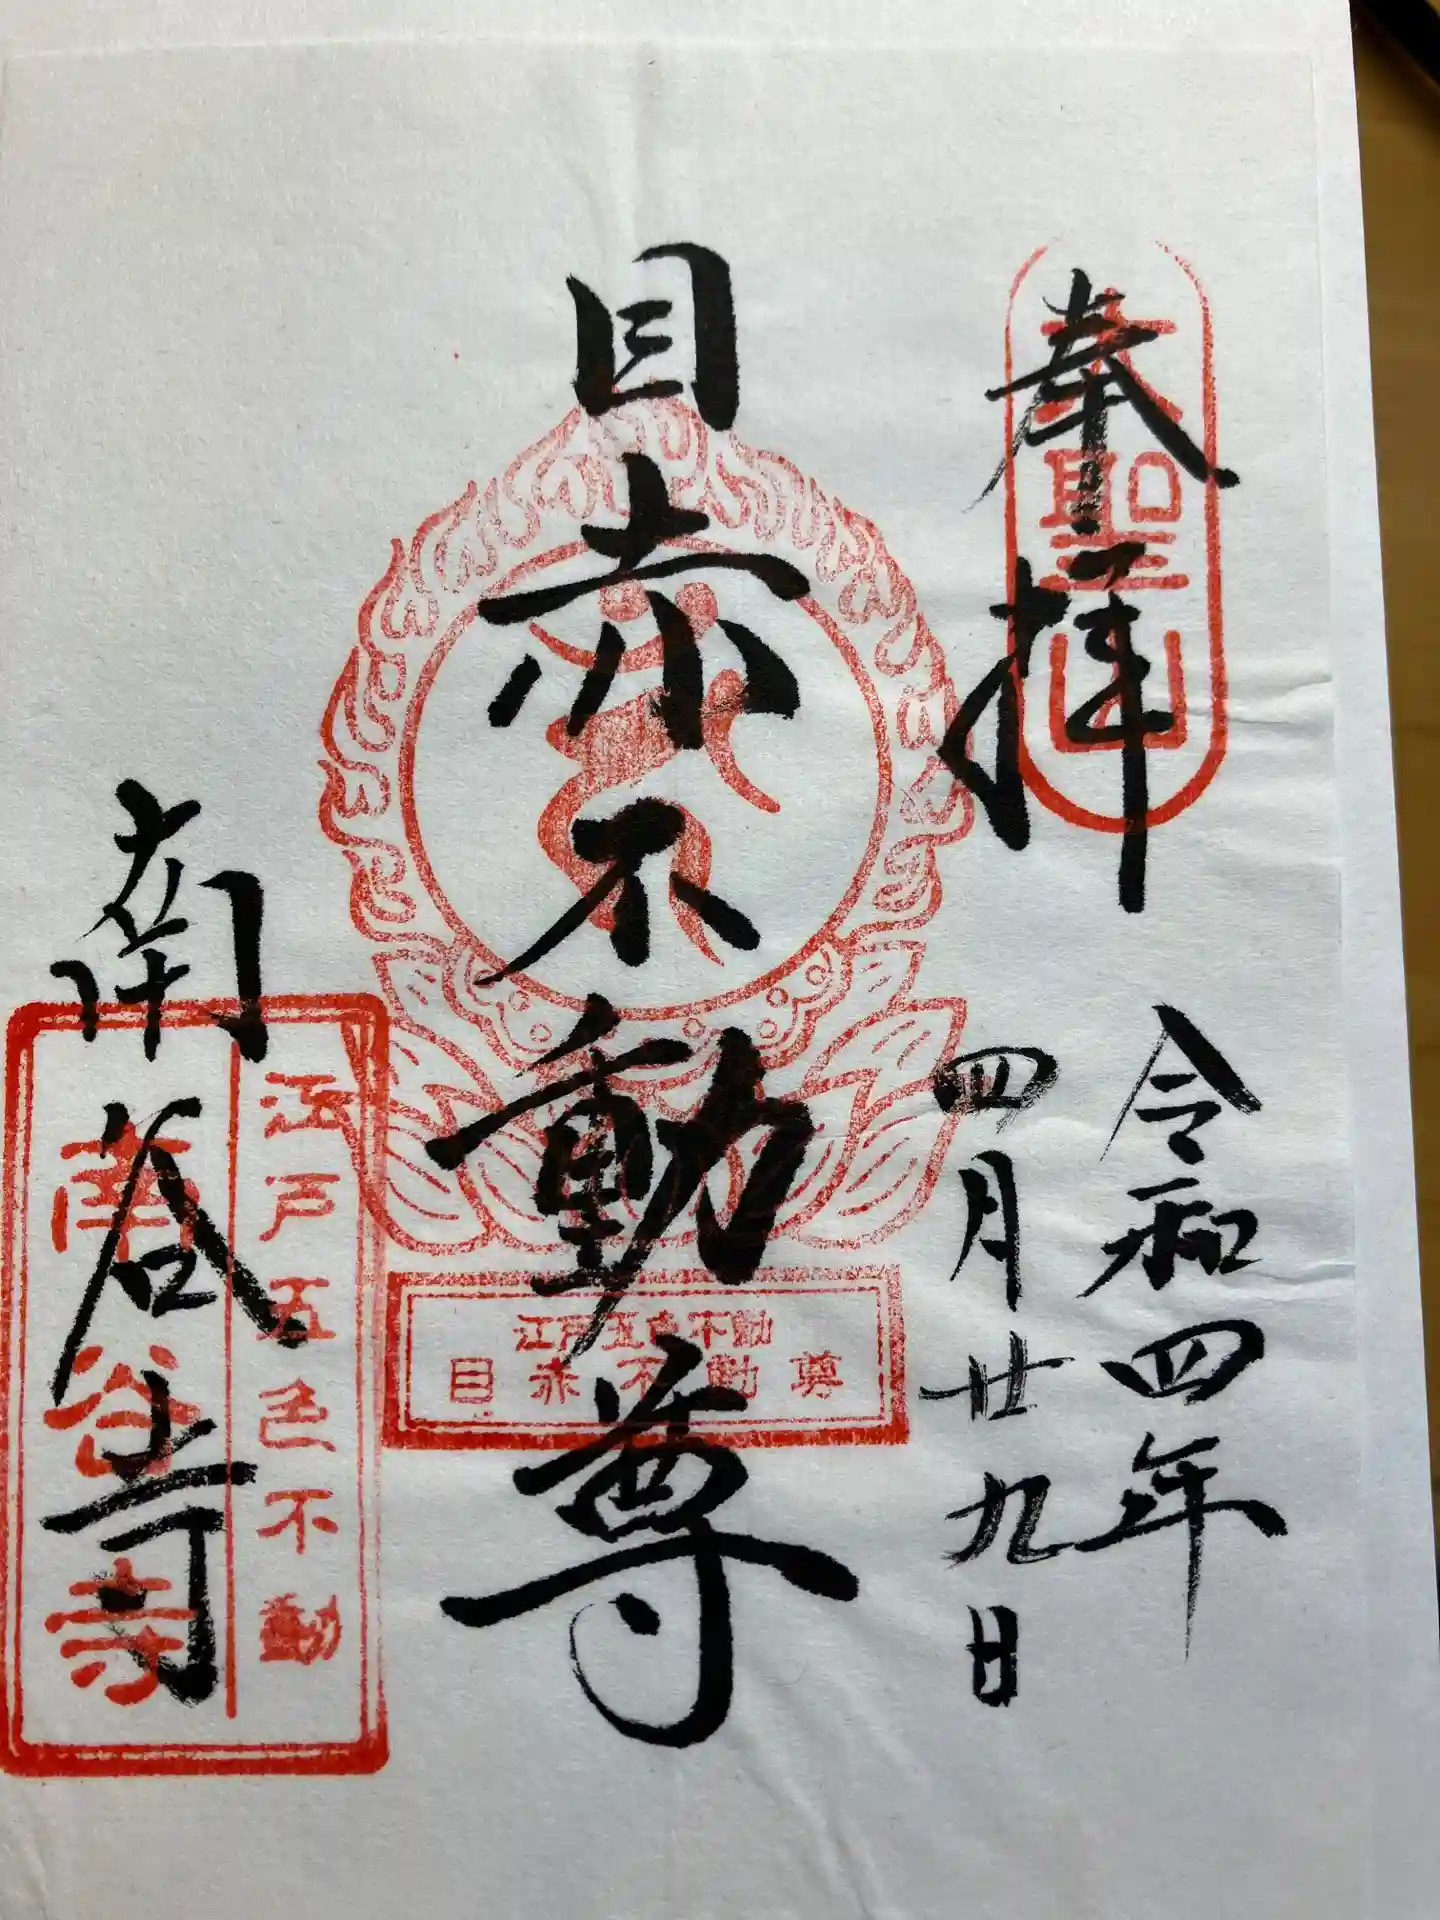 奉拝
大聖山
令和四年
四月廿九日
目赤不動尊
江戸五色不動
目赤不動尊
南谷寺
江戸五色不動
南谷寺